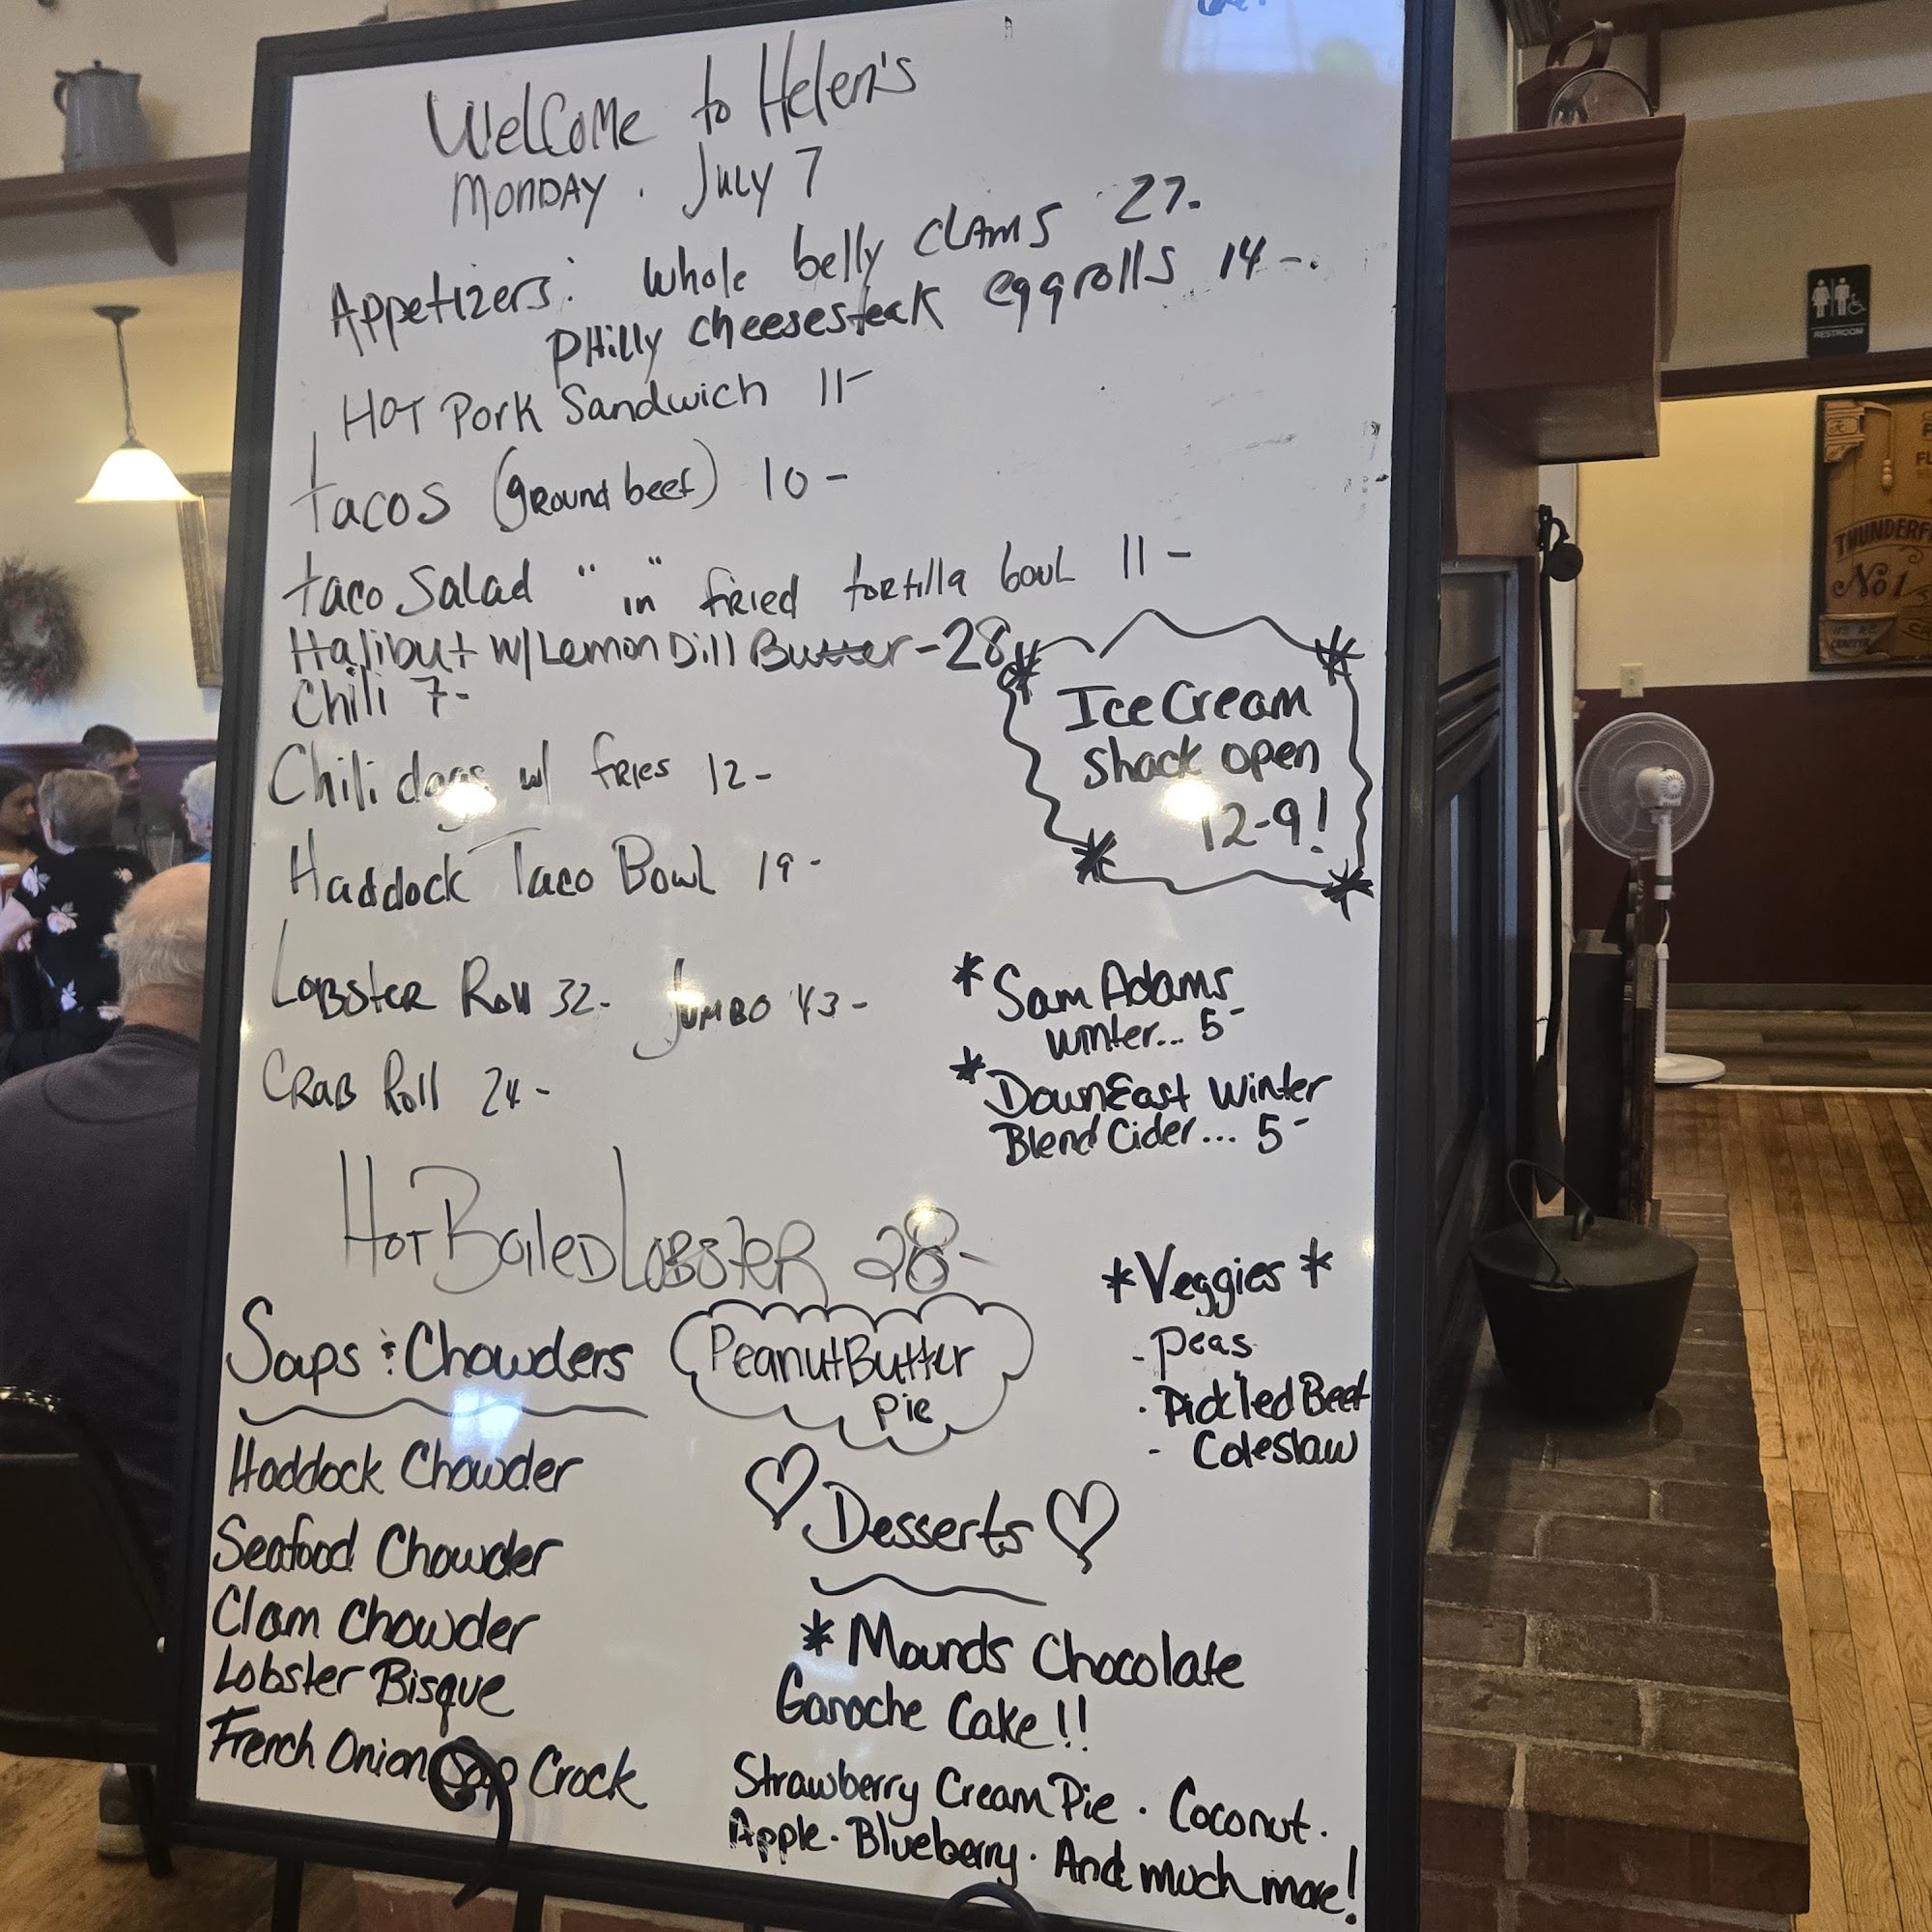 Welcome to Helen's
Monday . July 7
Appetizers: whole belly clams 27-
Philly cheesesteak eggrolls 14-.
Hot Pork Sandwich 11-
tacos (ground beef) 10-
taco Salad "in" fried tortilla bowl 11-
Halibut w/ Lemon Dill Butter -28
Chili 7-
Chili dogs w/ fries 12-
Haddock Taco Bowl 19-
Lobster Roll 32- Jumbo 43-
Crab Roll 24-
Ice Cream
Shack open
12-9!
* Sam Adams
Winter... 5-
* DownEast Winter
Blend Cider... 5-
Hot Boiled Lobster 28-
Soups & Chowders
Haddock Chowder
Seafood Chowder
Clam Chowder
Lobster Bisque
French Onion Soup Crock
Peanut Butter
Pie
* Veggies *
- Peas
- Pickled Beet
- Coleslaw
Desserts
* Mounds Chocolate
Ganache Cake!!
Strawberry Cream Pie · Coconut ·
Apple · Blueberry · And much more!
RESTROOM
No 1